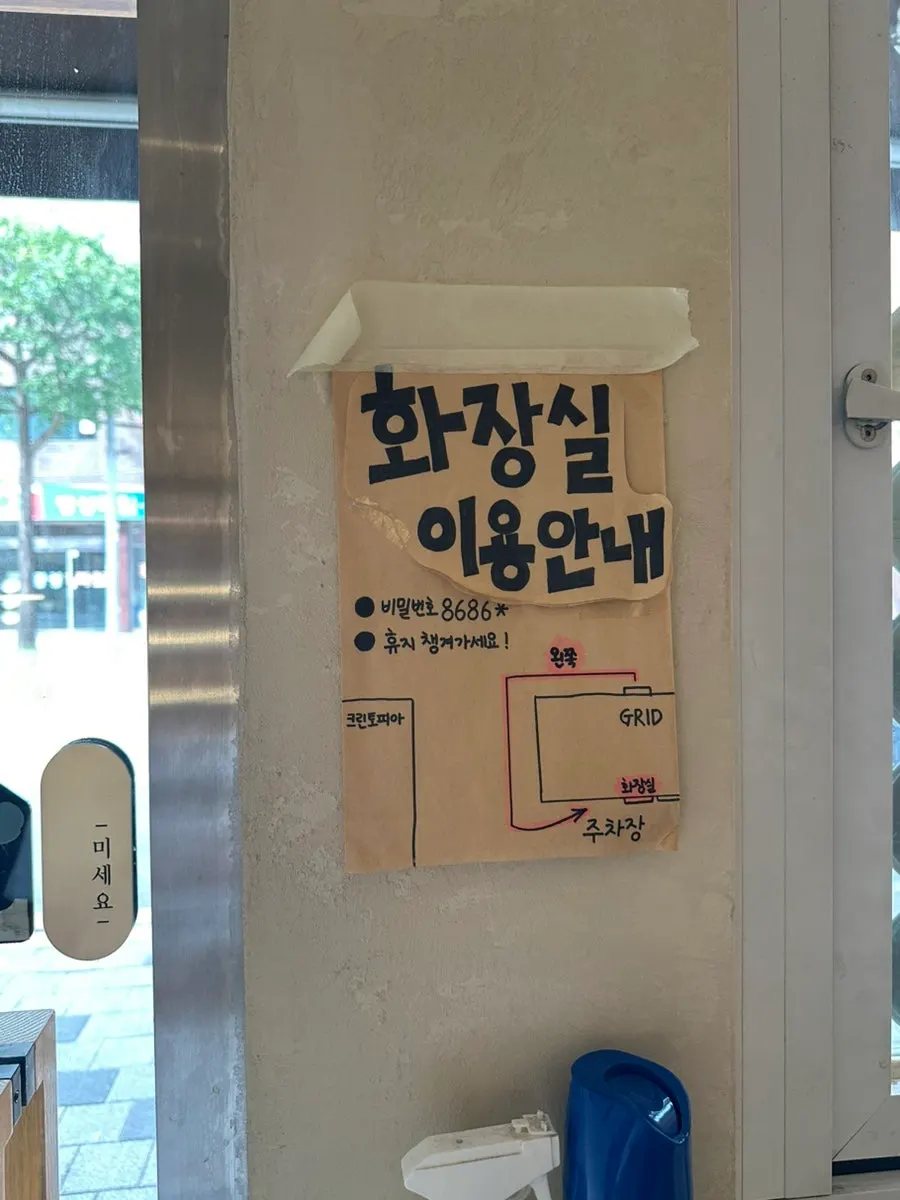 화장실
이용안내
● 비밀번호 8686*
● 휴지 챙겨가세요!
왼쪽
크린토피아
GRID
화장실
주차장
미세요